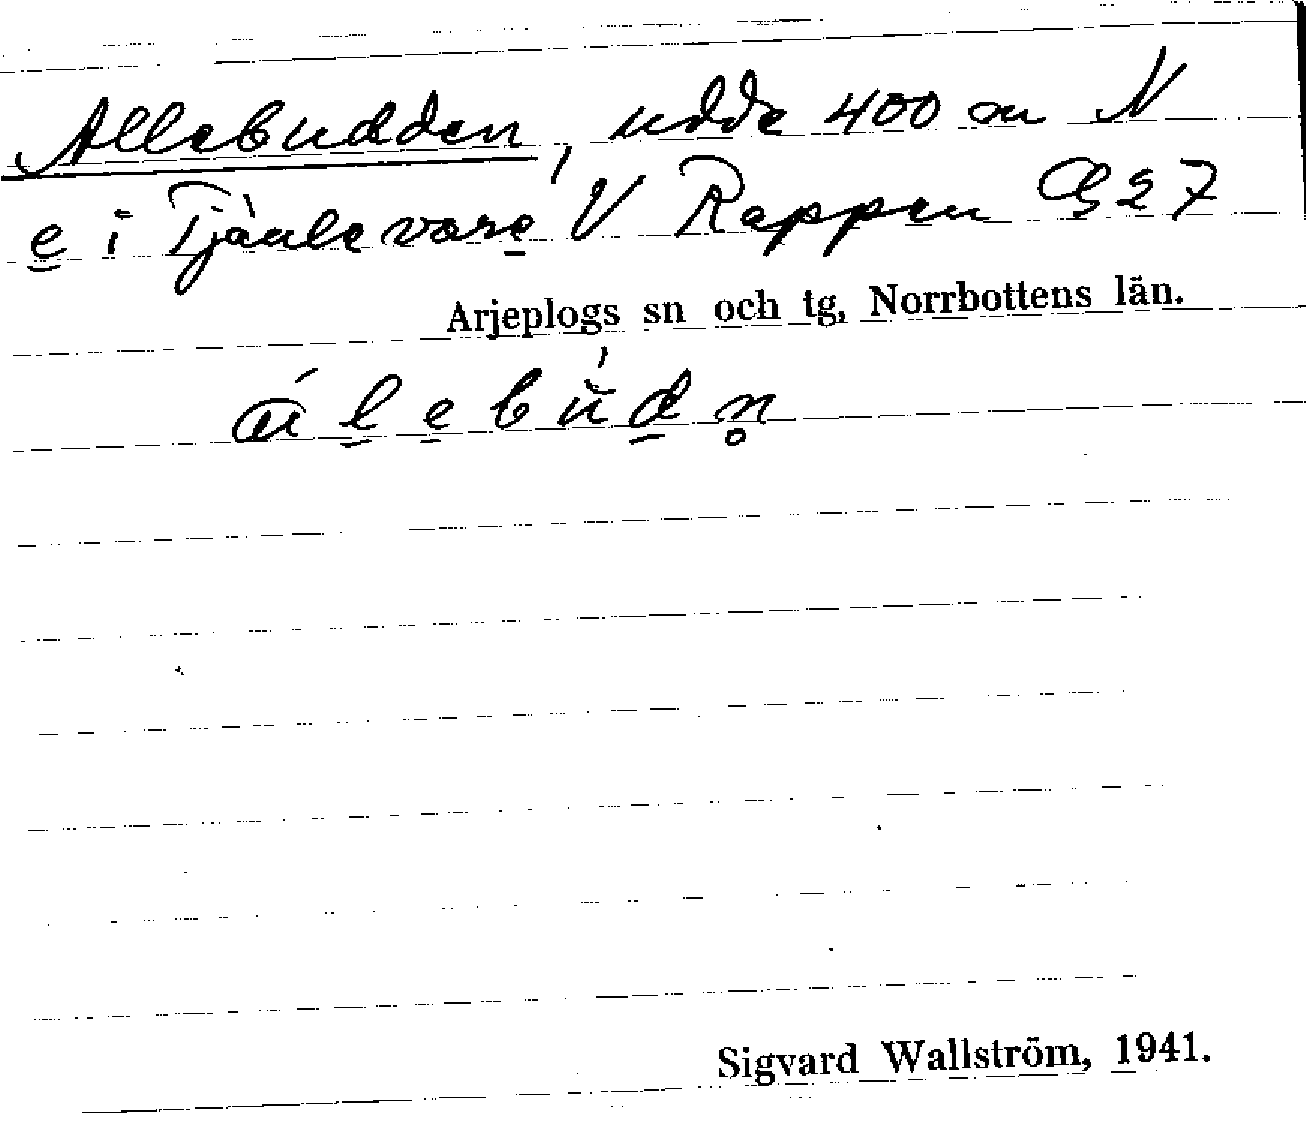 Allebudden, udde 400 m N
e i Tjàulevare V Rappen G27
Arjeplogs sn och tg, Norrbottens län.
Sigvard Wallström, 1941.